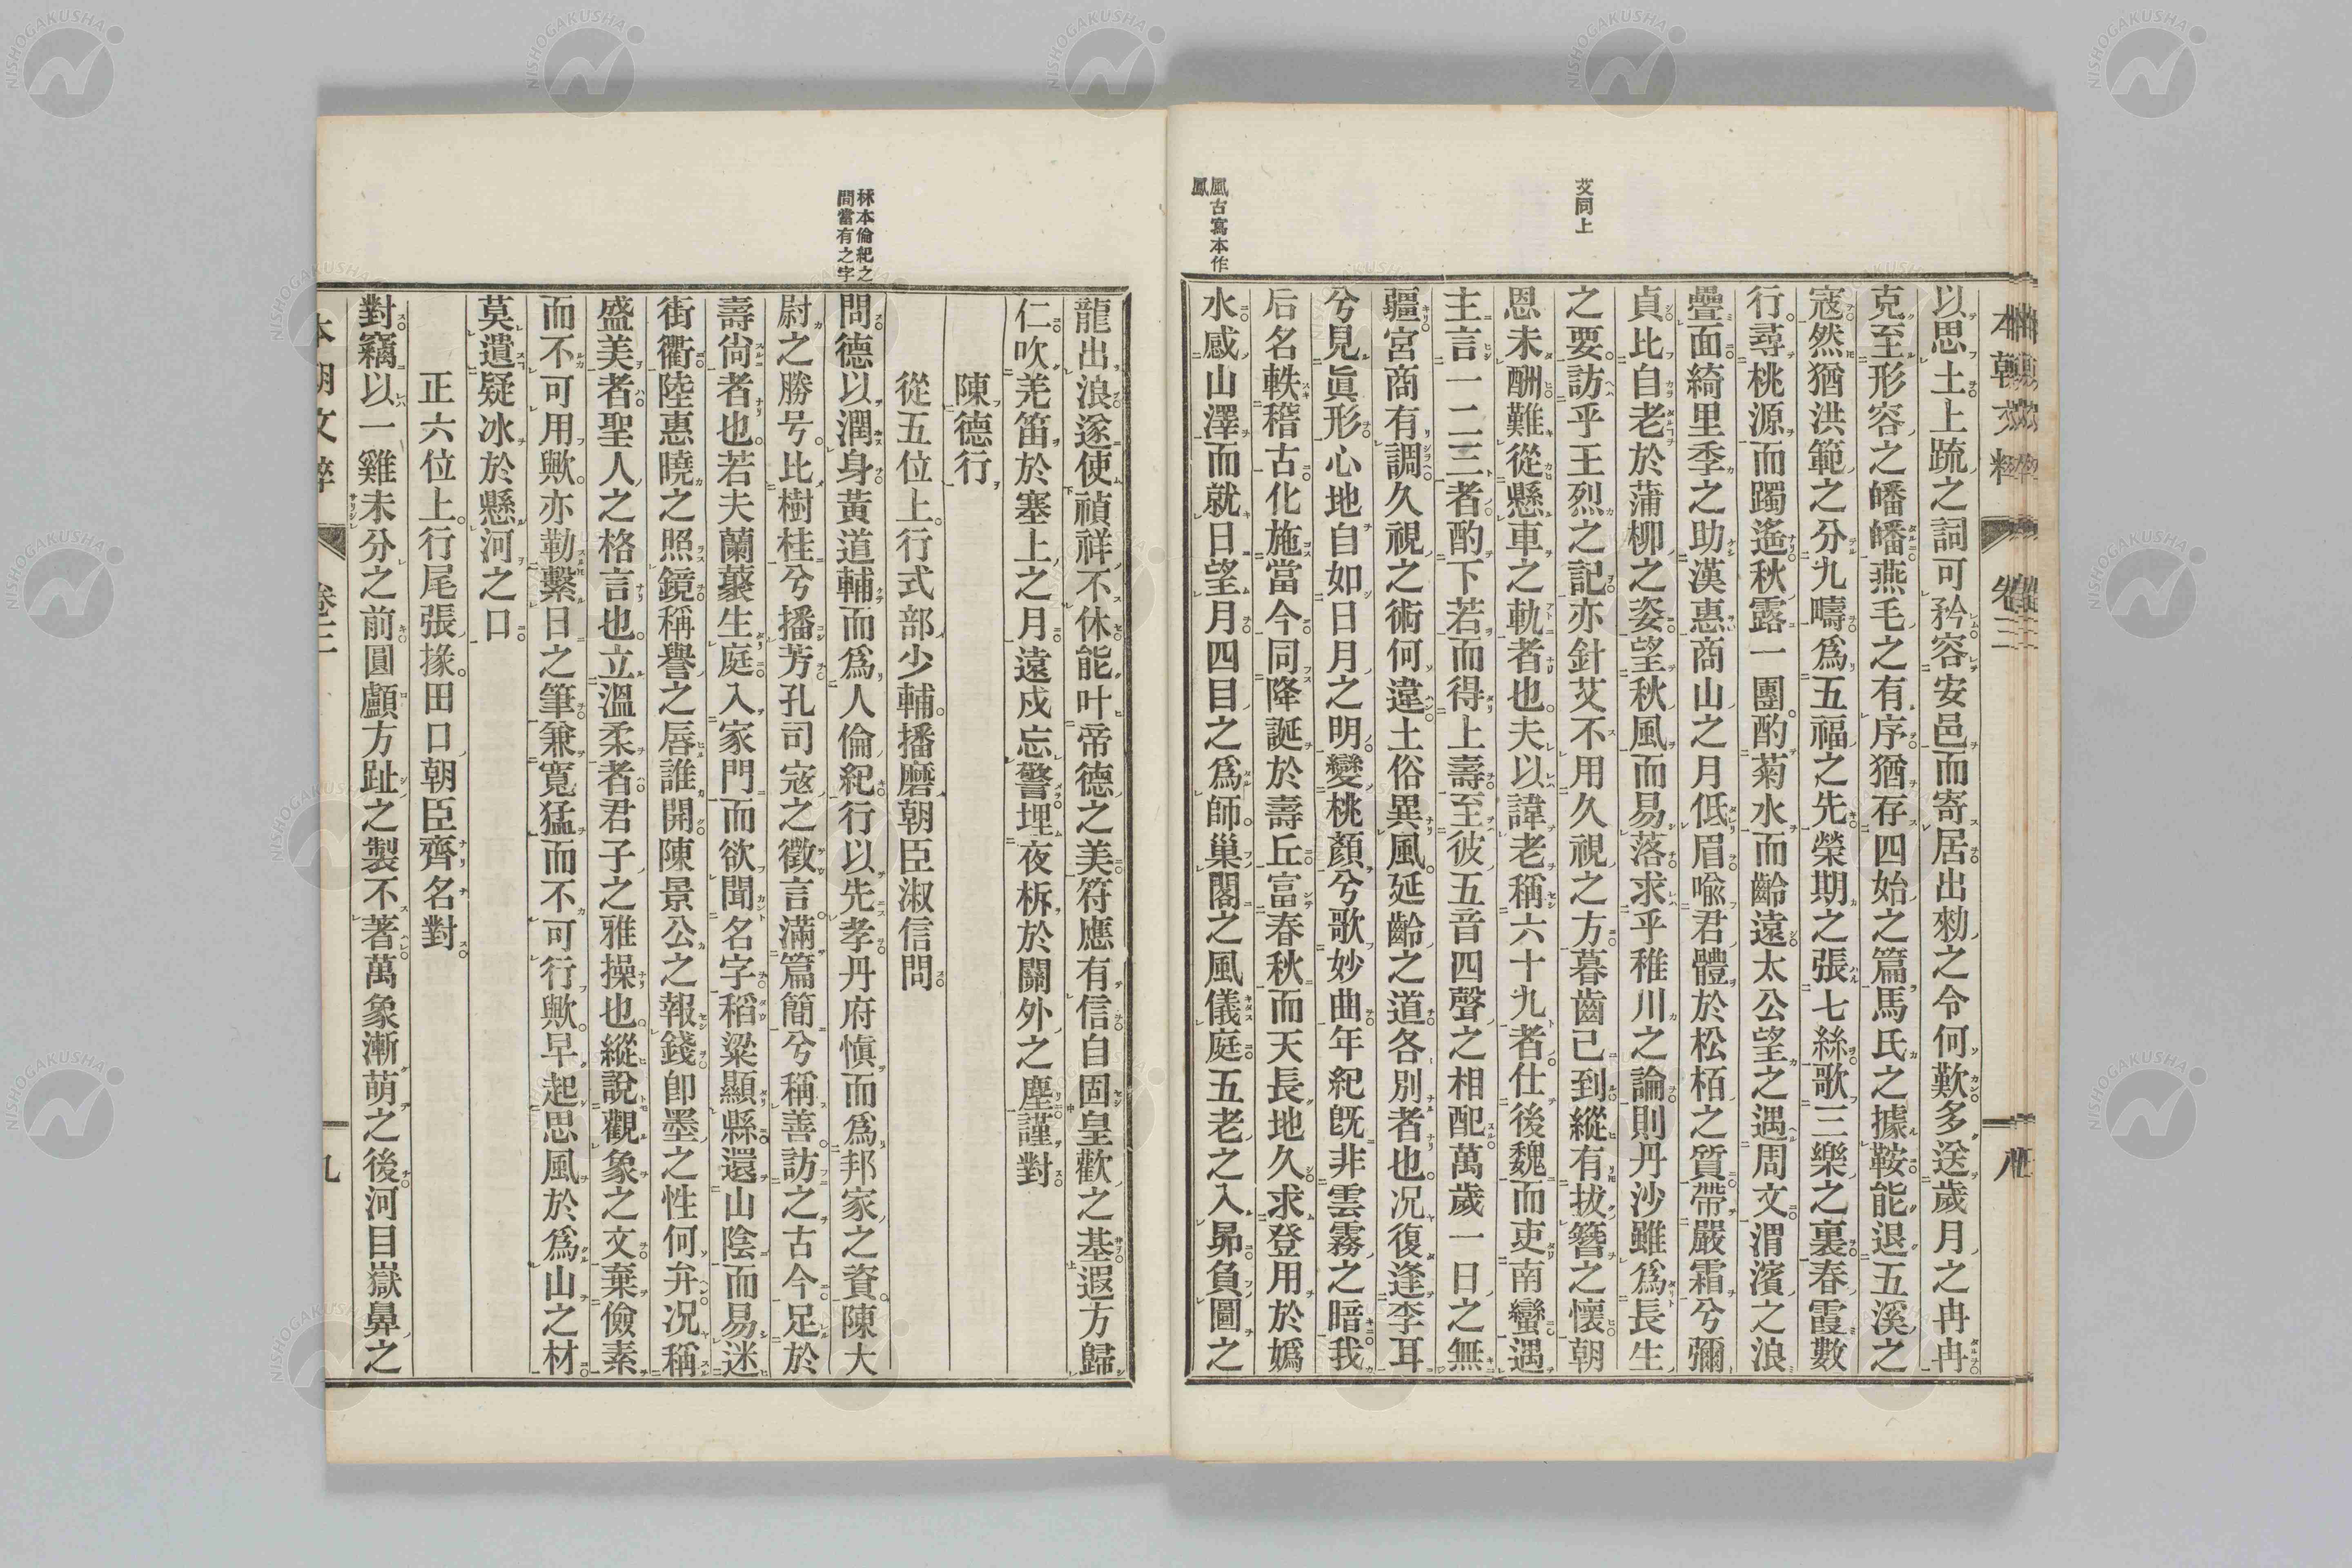 艾同上
風古寫本作
鳳
以思土上䟽之詞可矜容安邑而寄居出勑之令何歎多送歲月之冉冉
克至形容之皤皤燕毛之有序猶存四始之篇馬氏之據鞍能退五溪之
寇然猶洪範之分九疇爲五福之先榮期之張七絲歌三樂之裏春霞數
行尋桃源而躅遙秋露一團酌菊水而齡遠太公望之遇周文渭濱之浪
疊面綺里季之助漢惠商山之月低眉喩君體於松栢之質帶嚴霜兮彌
貞比自老於蒲柳之姿望秋風而易落求乎稚川之論則丹沙雖爲長生
之要訪乎王烈之記亦針艾不用久視之方暮齒已到縱有拔簪之懷朝
恩未酬難從懸車之軌者也夫以諱老稱六十九者仕後魏而吏南蠻遇
主言一二三者酌下若而得上壽至彼五音四聲之相配萬歲一日之無
疆宮商有調久視之術何違土俗異風延齡之道各別者也况復逢李耳
兮見眞形心地自如日月之明變桃顏兮歌妙曲年紀旣非雲霧之暗我
后名軼稽古化施當今同降誕於壽丘富春秋而天長地久求登用於嬀
水感山澤而就日望月四目之爲師巢閣之風儀庭五老之入昴負圖之
本朝文粹 卷三 八
林本倫紀之
間當有之字
龍出浪遂使禎祥不休能叶帝德之美符應有信自固皇歡之基遐方歸
仁吹羌笛於塞上之月遠戍忘警埋夜柝於關外之塵謹對
陳德行
從五位上行式部少輔播磨朝臣淑信問
問德以潤身黃道輔而爲人倫紀行以先孝丹府愼而爲邦家之資陳大
尉之勝号比樹桂兮播芳孔司寇之徵言滿篇簡兮稱善訪之古今足於
壽尙者也若夫蘭蘐生庭入家門而欲聞名字稻粱顯縣還山陰而易迷
街衢陸惠曉之照鏡稱譽之唇誰開陳景公之報錢卽墨之性何弁况稱
盛美者聖人之格言也立溫柔者君子之雅操也縱說觀象之文棄儉素
而不可用歟亦勒繫日之筆兼寬猛而不可行歟早起思風於爲山之材
莫遣疑冰於懸河之口
正六位上行尾張掾田口朝臣齊名對
對竊以一雞未分之前圓顱方趾之製不著萬象漸萌之後河目嶽鼻之
本朝文粹 卷三 九